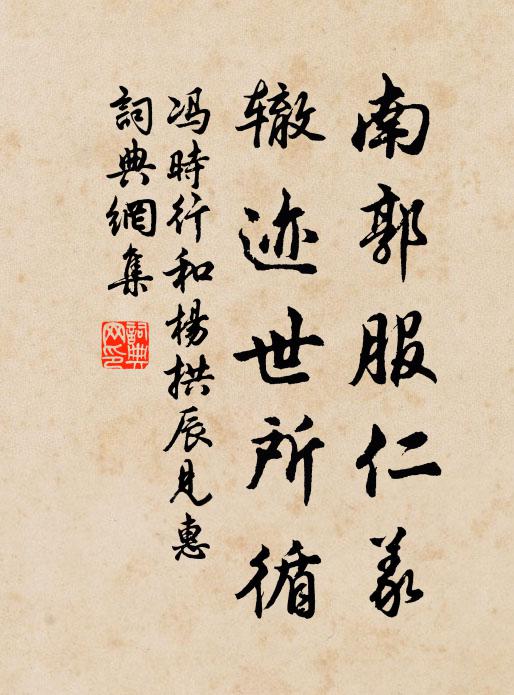 南郭服仁义
辙迹世所循
冯時行和楊拱辰见惠
詞典網集
詞典网印